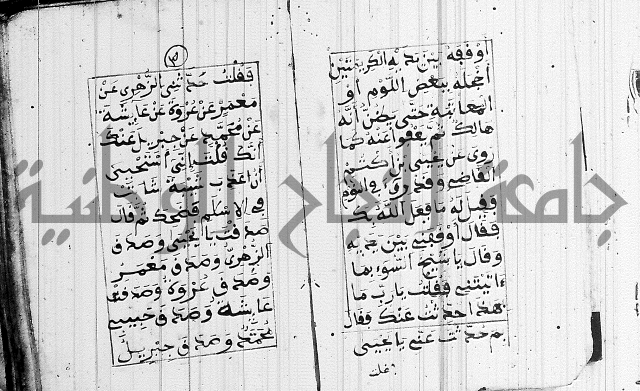 أوقفه بين يديه الكريمتين
أجمله ببعض اللوم أو
المعاتبة حتى يظن أنه
هالك ثم يعفو عنه كما
روي عن يحيى بن أكثم
القاضي وقد في النوم
وقيل له ما فعل الله بك
فقال أوقفني بين يديه
وقال يا شيخ السوء بما
أتيتني فقلت يا رب ما
هكذا حدثت عنك وقال
بم حدثت عني يا يحيى
فقلت
فقلت حدثني الزهري عن
معمر عن عروة عن عايشة
عن محمد عن جبريل عنك
أنك قلت إني أستحيي
أن أعذب شيبة شابت
في الإسلام فقال
صدقت يا يحيى وصدق
الزهري وصدق معمر
وصدق عروة وصدقت
عايشة وصدق حبيبي
محمد وصدق جبريل
جامعة النجاح الوطنية